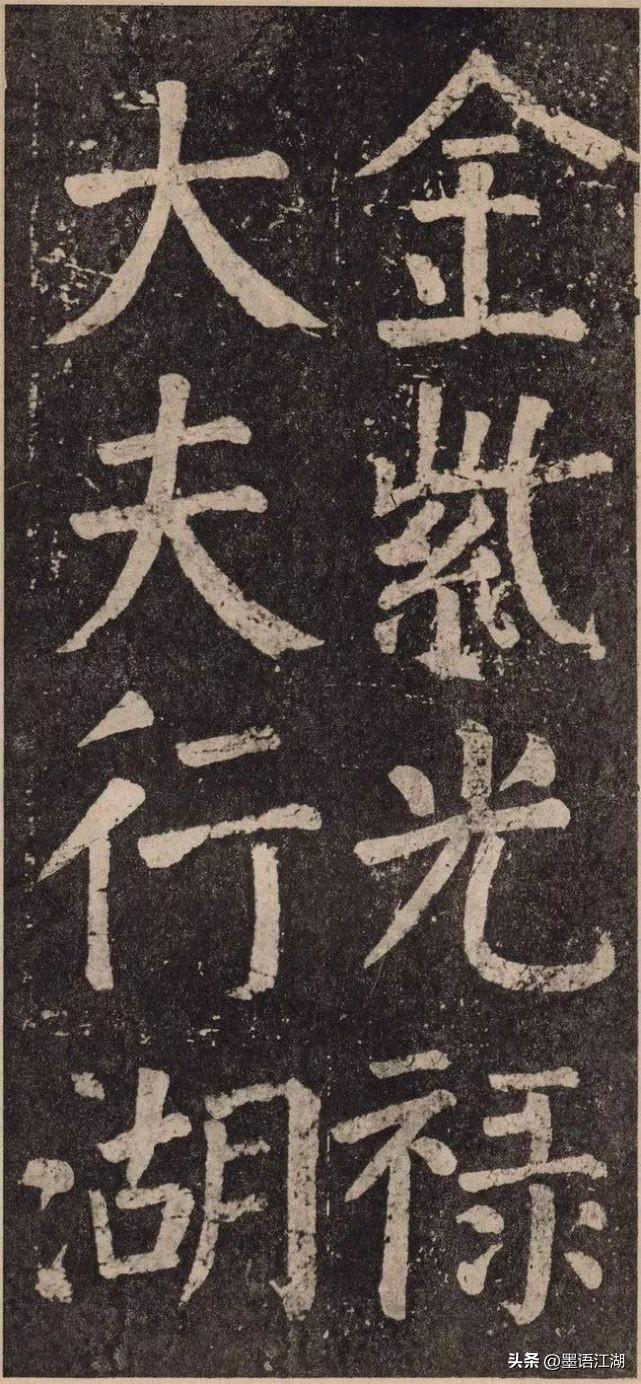 金紫光禄
大夫行湖
头条 @墨语江湖